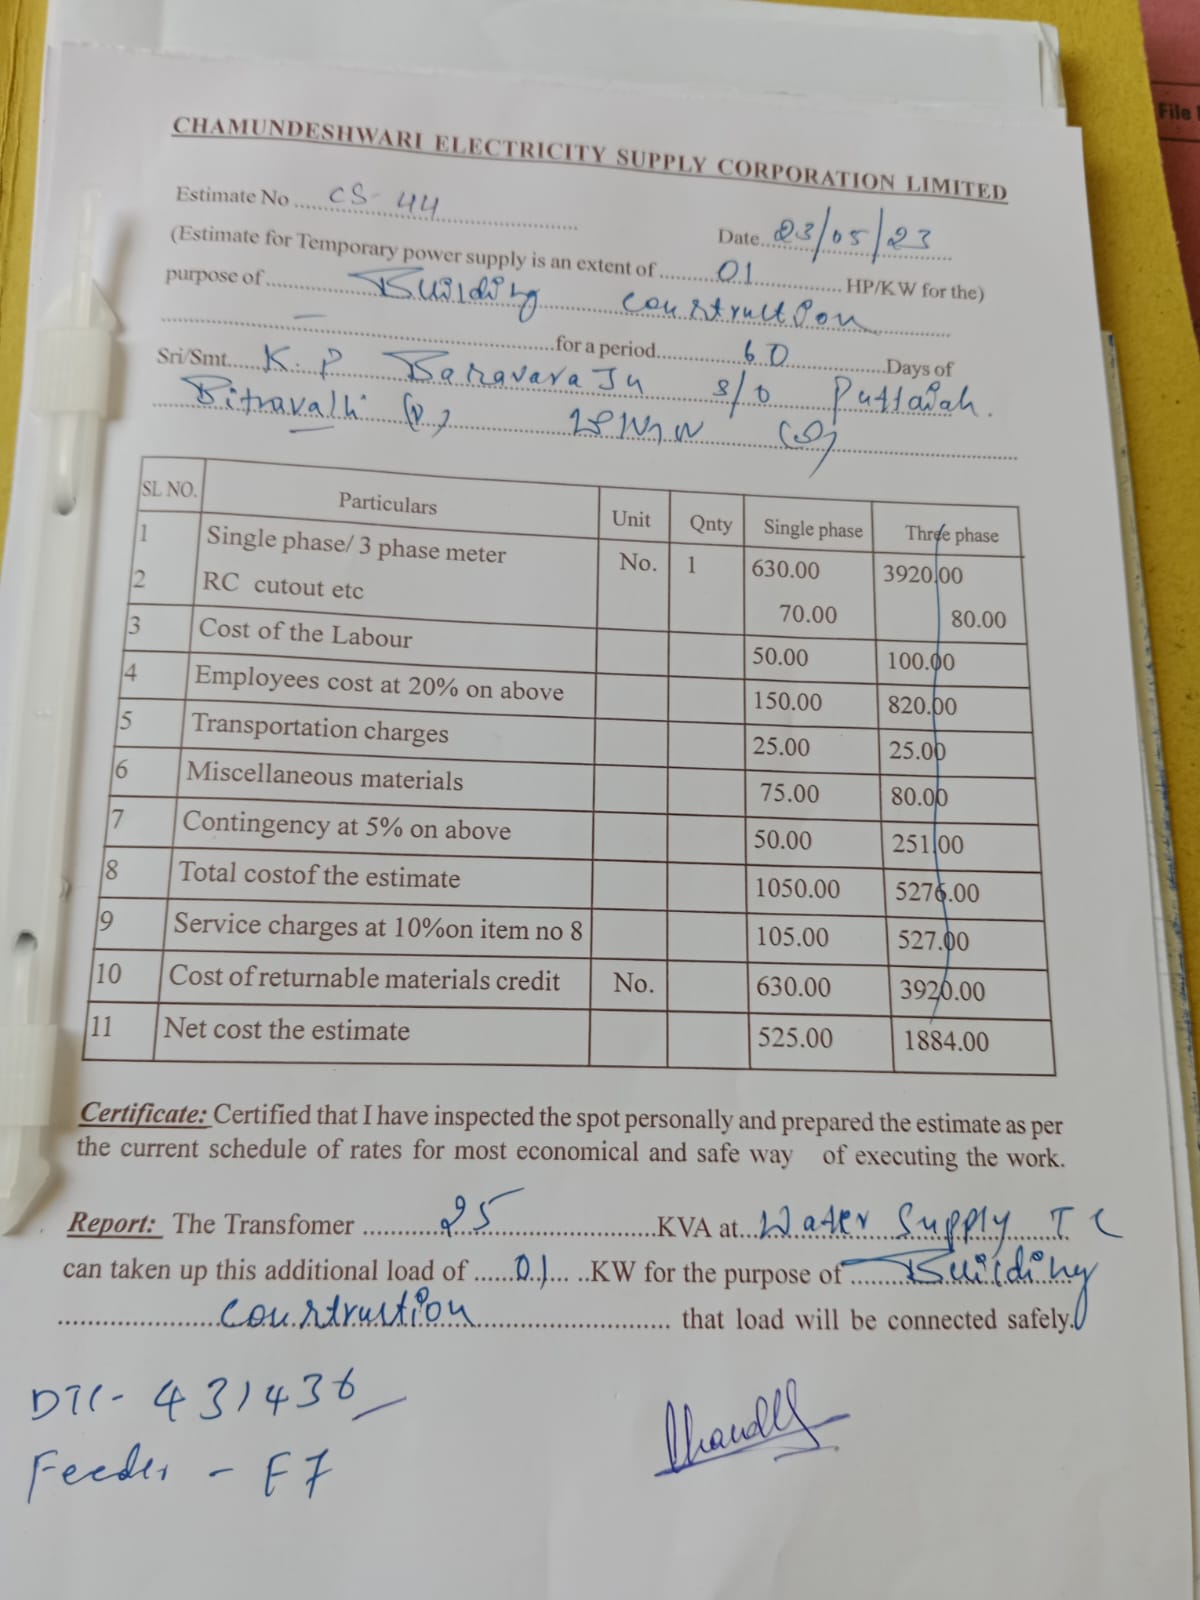 File
CHAMUNDESHWARI ELECTRICITY SUPPLY CORPORATION LIMITED
Estimate No ..... CS-44
Date.. 23/05/23
(Estimate for Temporary power supply is an extent of ......... 01 ............. HP/KW for the)
purpose of ............. Building construction
.............for a period............ 60 ..............Days of
Sri/Smt..... K. P Basavaraju S/o Puttaiah.
(V)
SL NO. Particulars Unit Qnty Single phase Three phase
1 Single phase/ 3 phase meter No. 1 630.00 3920.00
2 RC cutout etc 70.00 80.00
3 Cost of the Labour 50.00 100.00
4 Employees cost at 20% on above 150.00 820.00
5 Transportation charges 25.00 25.00
6 Miscellaneous materials 75.00 80.00
7 Contingency at 5% on above 50.00 251.00
8 Total costof the estimate 1050.00 5276.00
9 Service charges at 10%on item no 8 105.00 527.00
10 Cost of returnable materials credit No. 630.00 3920.00
11 Net cost the estimate 525.00 1884.00
Certificate: Certified that I have inspected the spot personally and prepared the estimate as per
the current schedule of rates for most economical and safe way of executing the work.
Report: The Transfomer ........... 25 .....................KVA at... Water Supply TC
can taken up this additional load of ...... 01 ... ..KW for the purpose of ......... Building
...................... construction ............................ that load will be connected safely.
DTC- 431436
Feeder - F7